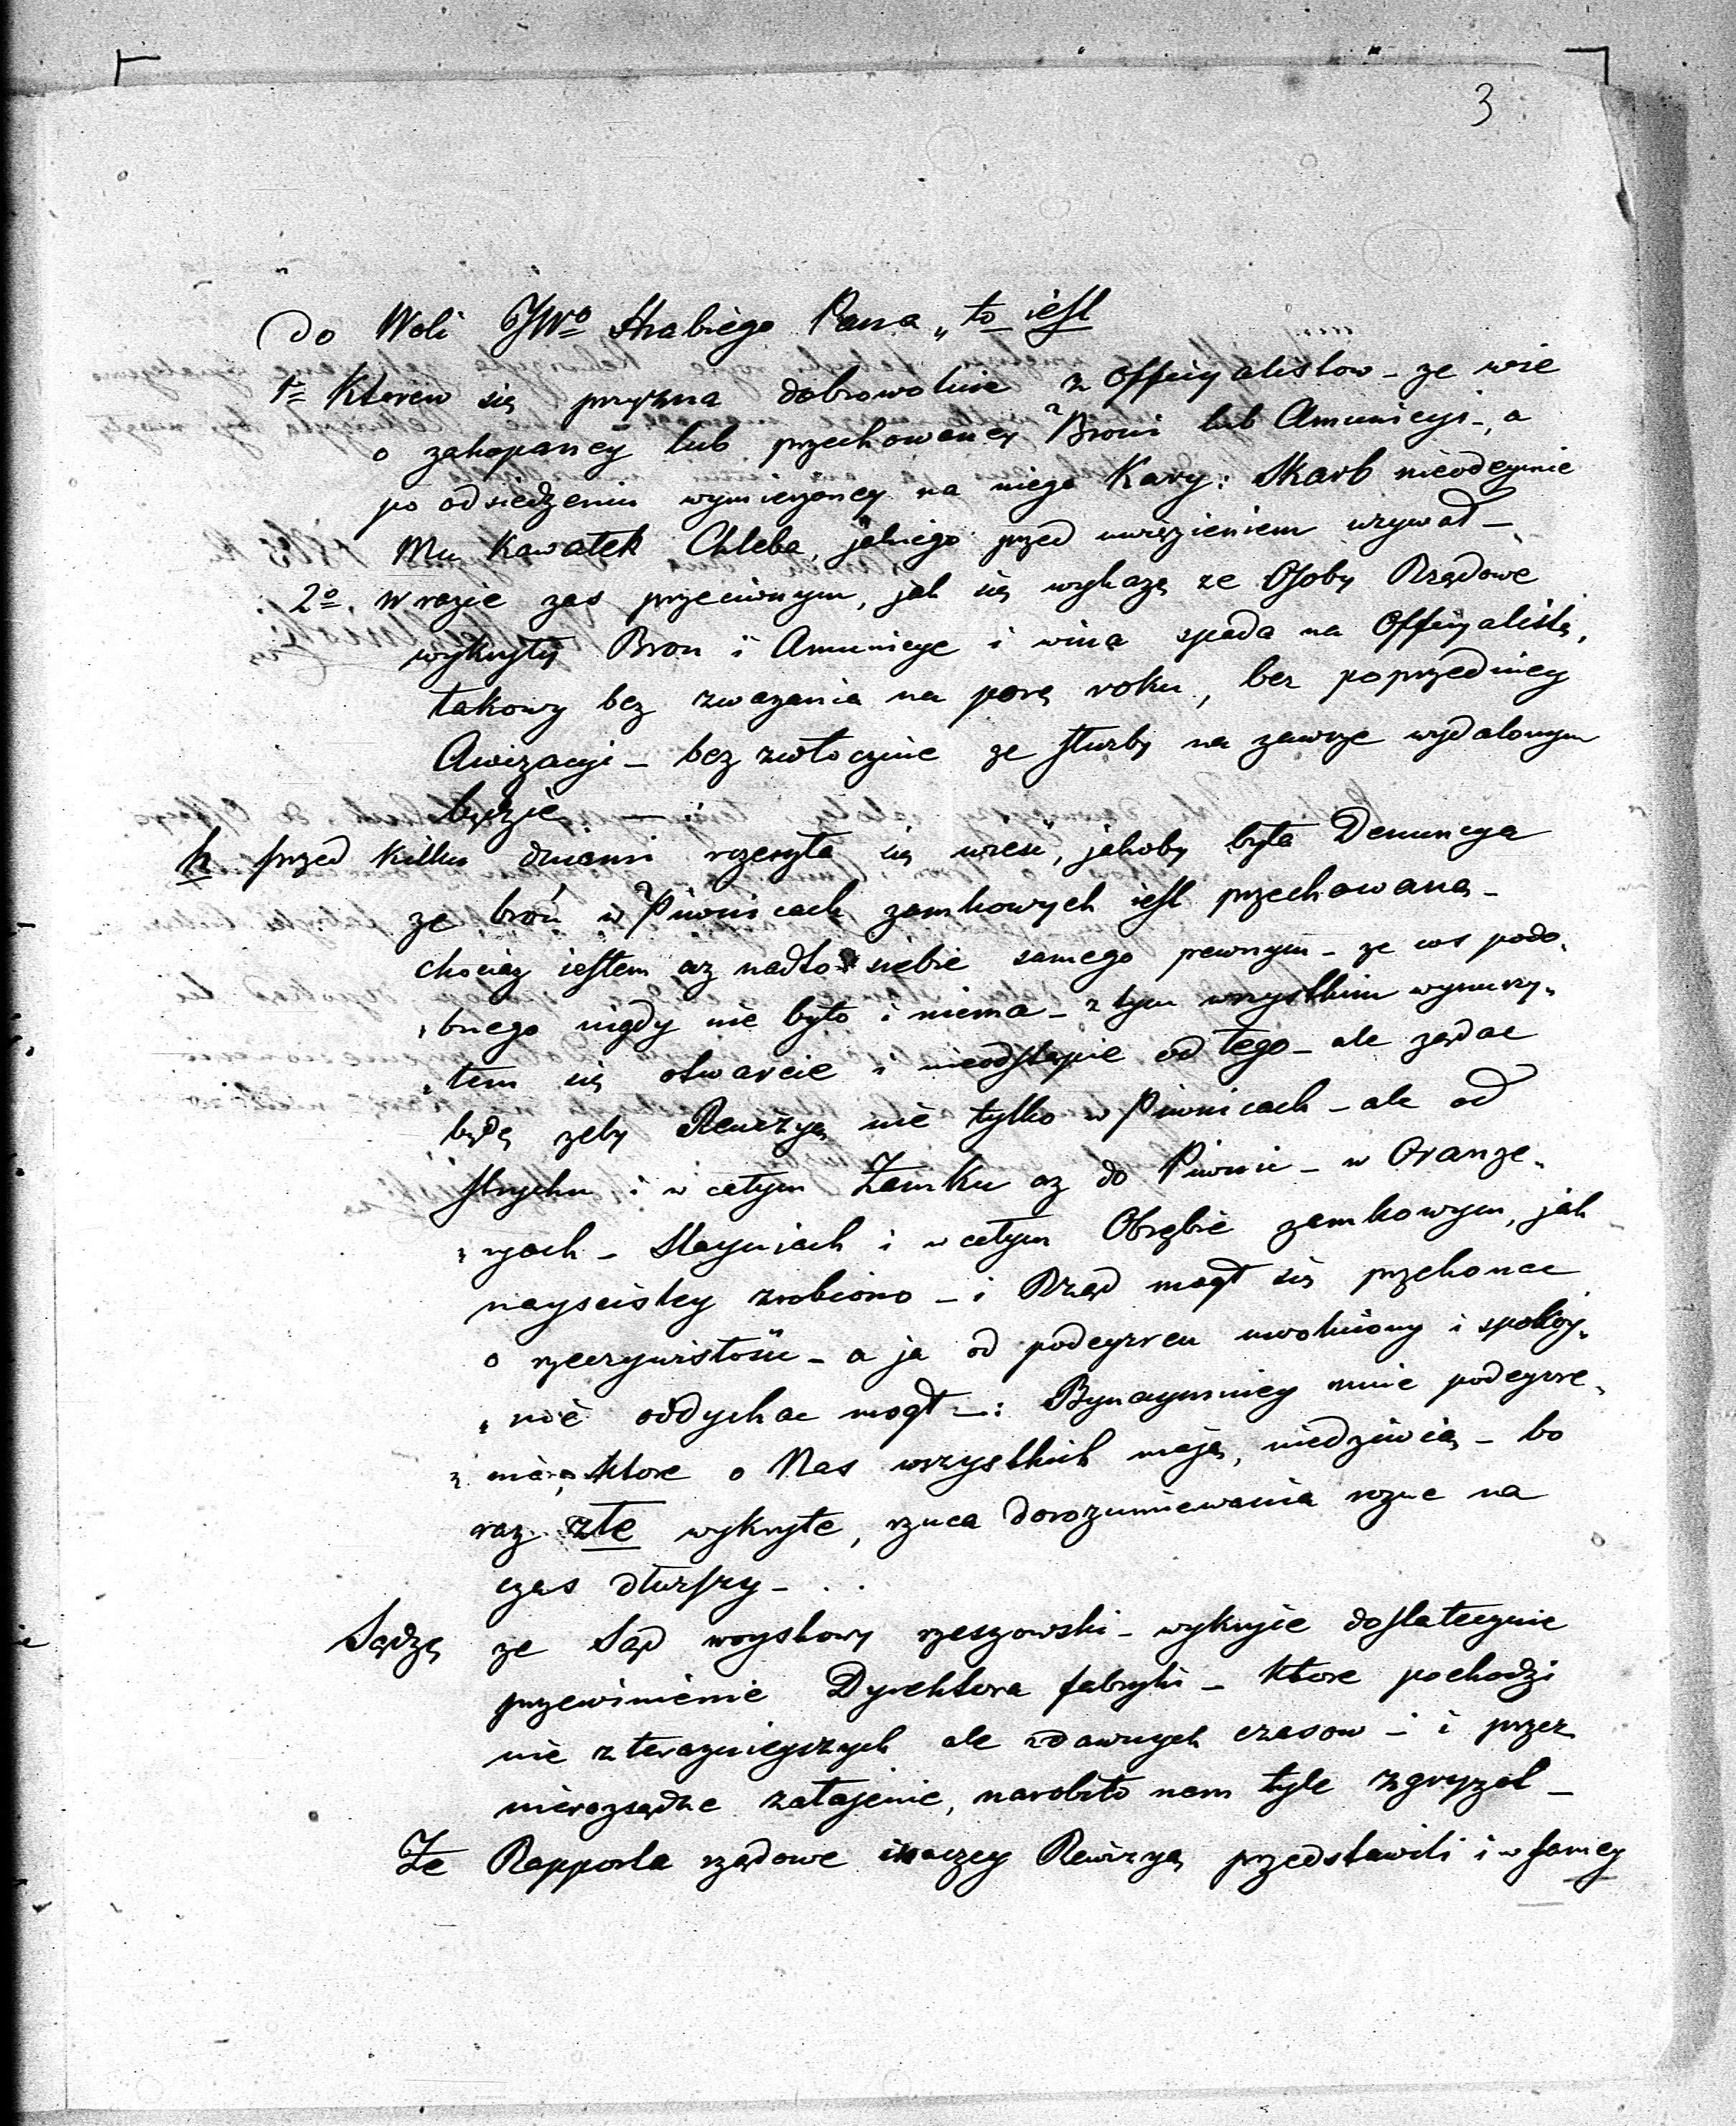 3
do Woli JWo Hrabiego Pana „ to iest
1o Któren się przyzna dobrowolnie z Officyalistow – ze wie
o zakopaney lub przechowaney Broni lub Amunicyi –, a
po odsiedzeniu wymierzoney na niego Kary: Skarb nieodeymie
Mu Kawałek Chleba, jakiego przed uwięzieniem uzywał –
2o. W razie zas przeciwnym, jak się wykazę ze Osoby Rządowe
wykryły Bron i Amunicye i wina spada na Officyalistę,
takowy bez zwazania na porę roku, bez poprzedniey
Awizacyi – bez zwłocznie ze służby na zawsze wydalonym
będzie. —
h przed kilku dniami rzeszyła się wieść, jakoby była Denuncya
ze broń w Piwnicach zamkowych iest przechowaną –
chociaz iestem az nadto siebie samego pewnym – ze cos podo„
„bnego nigdy nie było i niema – z tym wszystkim wynurzy„
„łem się otwarcie i nieodstąpie od tego – ale ządac
będę zeby Rewizyą nie tylko w Piwnicach – ale od
strychu i w całym Zamku az do Piwnic – w Oranze„
„ryach – Stayniach i w całym Obrębie zamkowym, jak
nayscisley zrobiono – i Rząd mogł się przekonac
o rzeczywistości – a ja od podeyrzeń uwolniony i spokoy„
„nie oddychac mogł –: Bynaymniey mnie podeyrze„
„nia, ktore o Nas wszystkich mają, niedziwią – bo
raz złe wykryte, rzuca dorozumiewania rozne na
czas dłuzszy – . .
Sądzę ze Sąd woyskowy rzeszowski – wykryie dostatecznie
przewinienie Dyrektora fabryki – ktore pochodzi
nie z terazniejszych ale z dawnych czasow – i przez
nierozsądne zatajenie, narobiło nam tyle zgryzot –
Ze Rapporta rządowe inaczey Rewizyą przedstawili i w samey